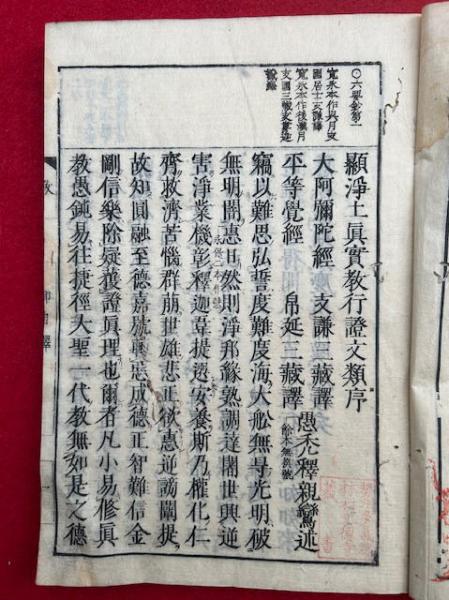 〇六要鈔第一
寬永本作吳月支
國居士支謙譯
寬永本作後漢月
支國三藏支婁迦
讖譯
顯淨土眞實教行證文類序
大阿彌陀經 支謙三藏譯
平等覺經 帛延三藏譯
愚禿釋親鸞述
餘本無撰號
竊以難思弘誓度難度海大舩無㝵光明破
無明闇惠日然則淨邦緣熟調達闍世興逆
害淨業機彰釋迦韋提選安養斯乃權化仁
齊救濟苦惱群萠世雄悲正欲惠逆謗闡提
故知圓融至德嘉號轉惡成德正智難信金
剛信樂除疑獲證眞理也爾者凡小易修眞
教愚鈍易往捷徑大聖一代教無如是之德